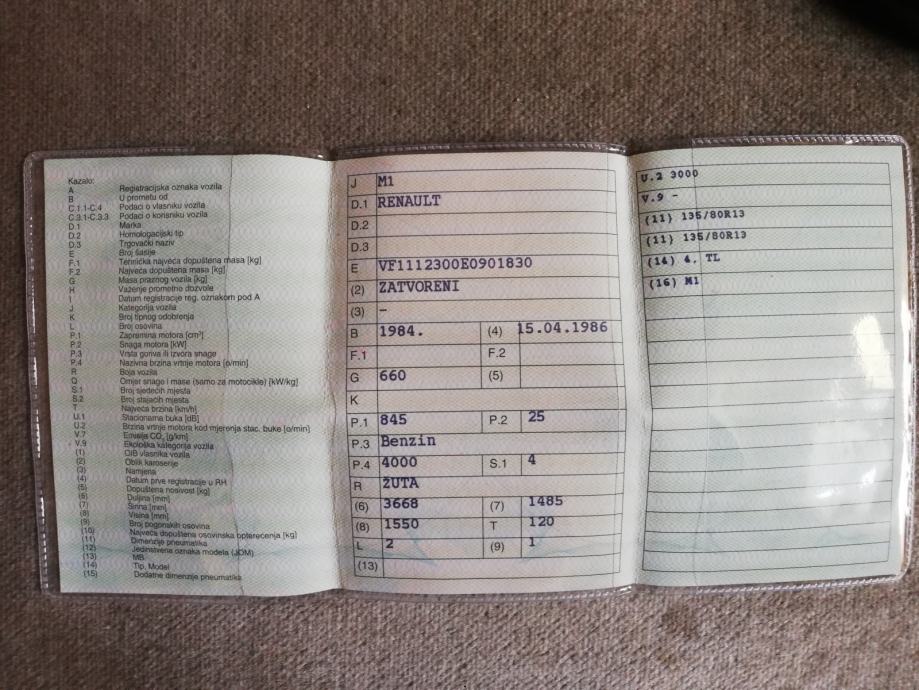 Kazalo:
A Registracijska oznaka vozila
B U prometu od
C.1.1-C.4 Podaci o vlasniku vozila
C.3.1-C.3.3 Podaci o korisniku vozila
D.1 Marka
D.2 Homologacijski tip
D.3 Trgovački naziv
E Broj šasije
F.1 Tehnička najveća dopuštena masa [kg]
F.2 Najveća dopuštena masa [kg]
G Masa praznog vozila [kg]
H Važenje prometne dozvole
I Datum registracije reg. oznakom pod A
J Kategorija vozila
K Broj tipnog odobrenja
L Broj osovina
P.1 Zapremina motora [cm³]
P.2 Snaga motora [kW]
P.3 Vrsta goriva ili izvora snage
P.4 Nazivna brzina vrtnje motora [o/min]
R Boja vozila
Q Omjer snage i mase (samo za motocikle) [kW/kg]
S.1 Broj sjedećih mjesta
S.2 Broj stajaćih mjesta
T Najveća brzina [km/h]
U.1 Stacionarna buka [dB]
U.2 Brzina vrtnje motora kod mjerenja stac. buke [o/min]
V.7 Emisija CO₂ [g/km]
V.9 Ekološka kategorija vozila
(1) OIB vlasnika vozila
(2) Oblik karoserije
(3) Namjena
(4) Datum prve registracije u RH
(5) Dopuštena nosivost [kg]
(6) Duljina [mm]
(7) Širina [mm]
(8) Visina [mm]
(9) Broj pogonskih osovina
(10) Najveća dopuštena osovinska opterećenja [kg]
(11) Dimenzije pneumatika
(12) Jedinstvena oznaka modela (JOM)
(13) MB
(14) Tip, Model
(15) Dodatne dimenzije pneumatika
J M1
D.1 RENAULT
D.2
D.3
E VF1112300E0901830
(2) ZATVORENI
(3) -
B 1984. (4) 15.04.1986
F.1 F.2
G 660 (5)
K
P.1 845 P.2 25
P.3 Benzin
P.4 4000 S.1 4
R ŽUTA
(6) 3668 (7) 1485
(8) 1550 T 120
L 2 (9) 1
(13)
U.2 3000
V.9 -
(11) 135/80R13
(11) 135/80R13
(14) 4, TL
(16) M1